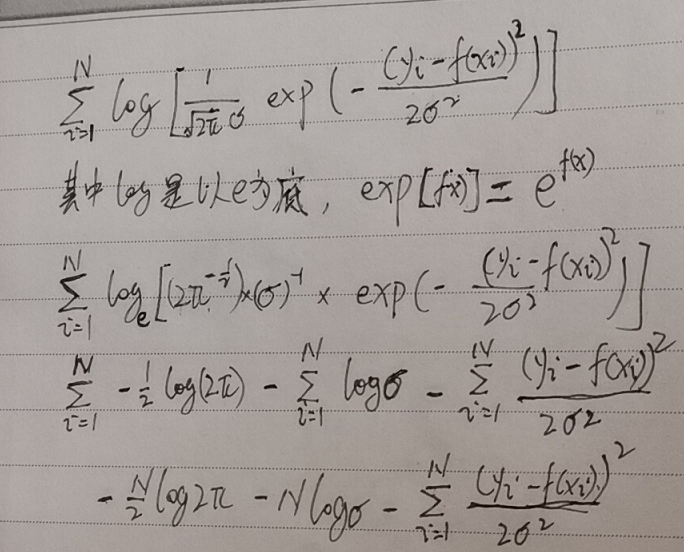 ∑_{i=1}^{N} log [ \frac{1}{\sqrt{2π} σ} exp ( - \frac{(y_i - f(x_i))^2}{2σ^2} ) ]
其中 log 是以e为底, exp[f(x)] = e^{f(x)}
∑_{i=1}^{N} log_e [ (2π^{-\frac{1}{2}}) × (σ)^{-1} × exp ( - \frac{(y_i - f(x_i))^2}{2σ^2} ) ]
∑_{i=1}^{N} - \frac{1}{2} log(2π) - ∑_{i=1}^{N} log σ - ∑_{i=1}^{N} \frac{(y_i - f(x_i))^2}{2σ^2}
- \frac{N}{2} log 2π - N log σ - ∑_{i=1}^{N} \frac{(y_i - f(x_i))^2}{2σ^2}